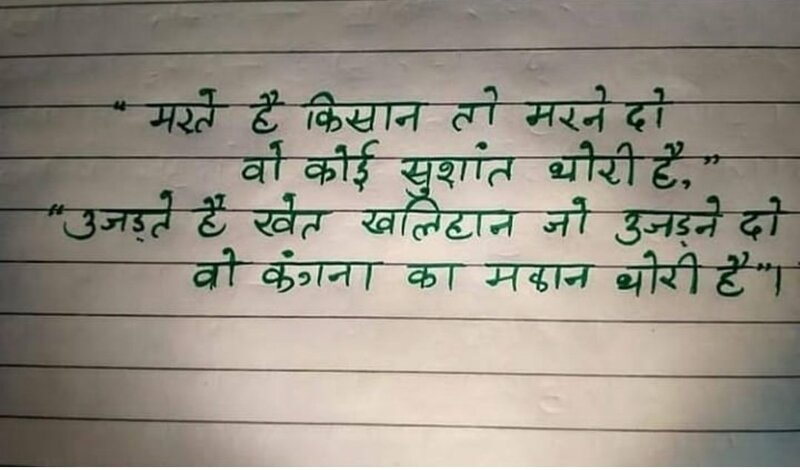 “ मरते है किसान तो मरने दो
वो कोई सुशांत थोरी है,”
“उजड़ते है खेत खलिहान जो उजड़ने दो
वो कंगना का मकान थोरी है”।